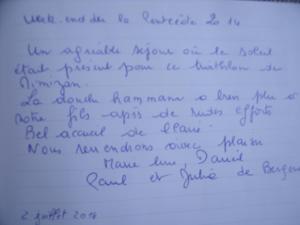 Week-end de la Pentecôte 2014
Un agréable séjour où le soleil
était présent pour ce triathlon de
Mimizan.
La douche hammam a bien plu à
notre fils après de rudes efforts
Bel accueil de
Nous reviendrons avec plaisir
Marie Line, Daniel
Paul et Julie de
2 juillet 2014